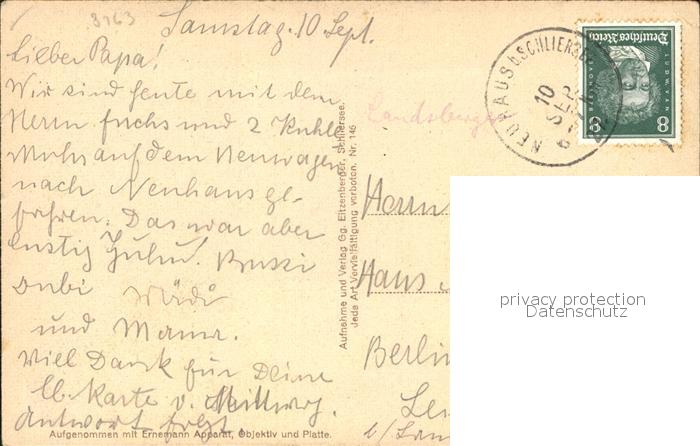 3163
Samstag. 10 Sept.
Lieber Papa!
Wir sind heute mit dem
Herrn Fuchs und 2
auf dem
nach Neuhaus ge-
fahren. Das war aber
lustig
Bubi Mädi
und Mama.
Viel Dank für Deine
lb. Karte v. Mittwoch.
Antwort folgt.
Aufgenommen mit Ernemann Apparat, Objektiv und Platte.
Aufnahme und Verlag Gg. Eitzenberger, Schliersee.
Jede Art Vervielfältigung verboten. Nr. 146
Landsberger
NEUHAUS b. SCHLIERSEE
10
SEP
Deutsches Reich
LUDW. VAN
BEETHOVEN
8 8
Herrn
Hans
Berlin
privacy protection
Datenschutz